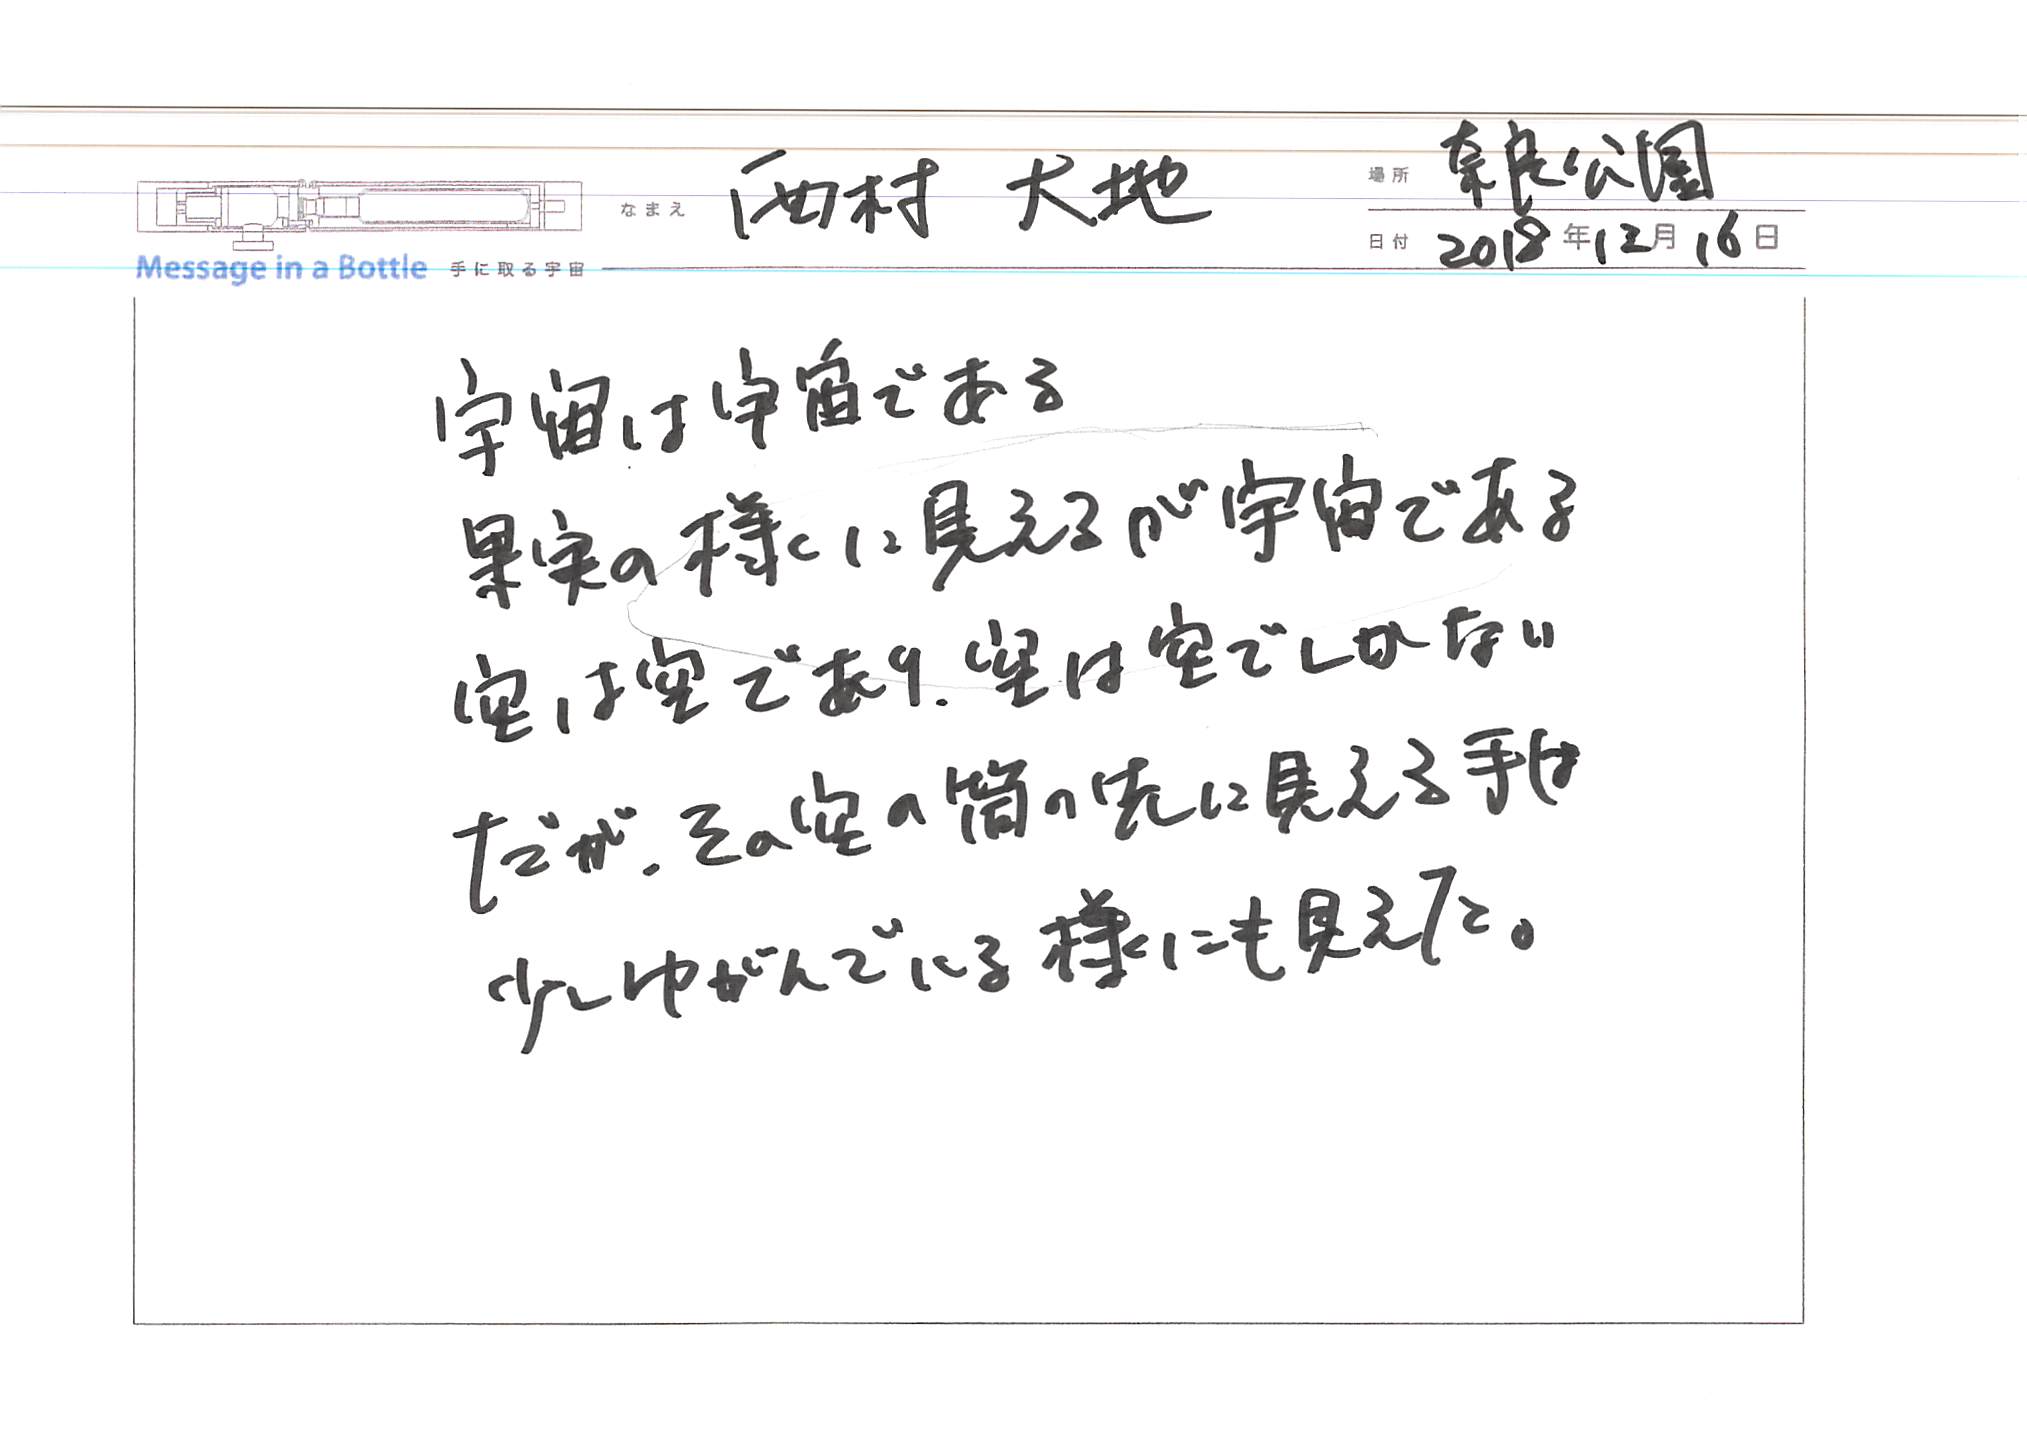 なまえ 西村 大地
場所 奈良公園
日付 2018年12月16日
Message in a Bottle 手に取る宇宙
宇宙は宇宙である
果実の様に見えるが宇宙である
空は空であり、空は空でしかない
だが、その空の筒の先に見える手は
少しゆがんでいる様にも見えた。